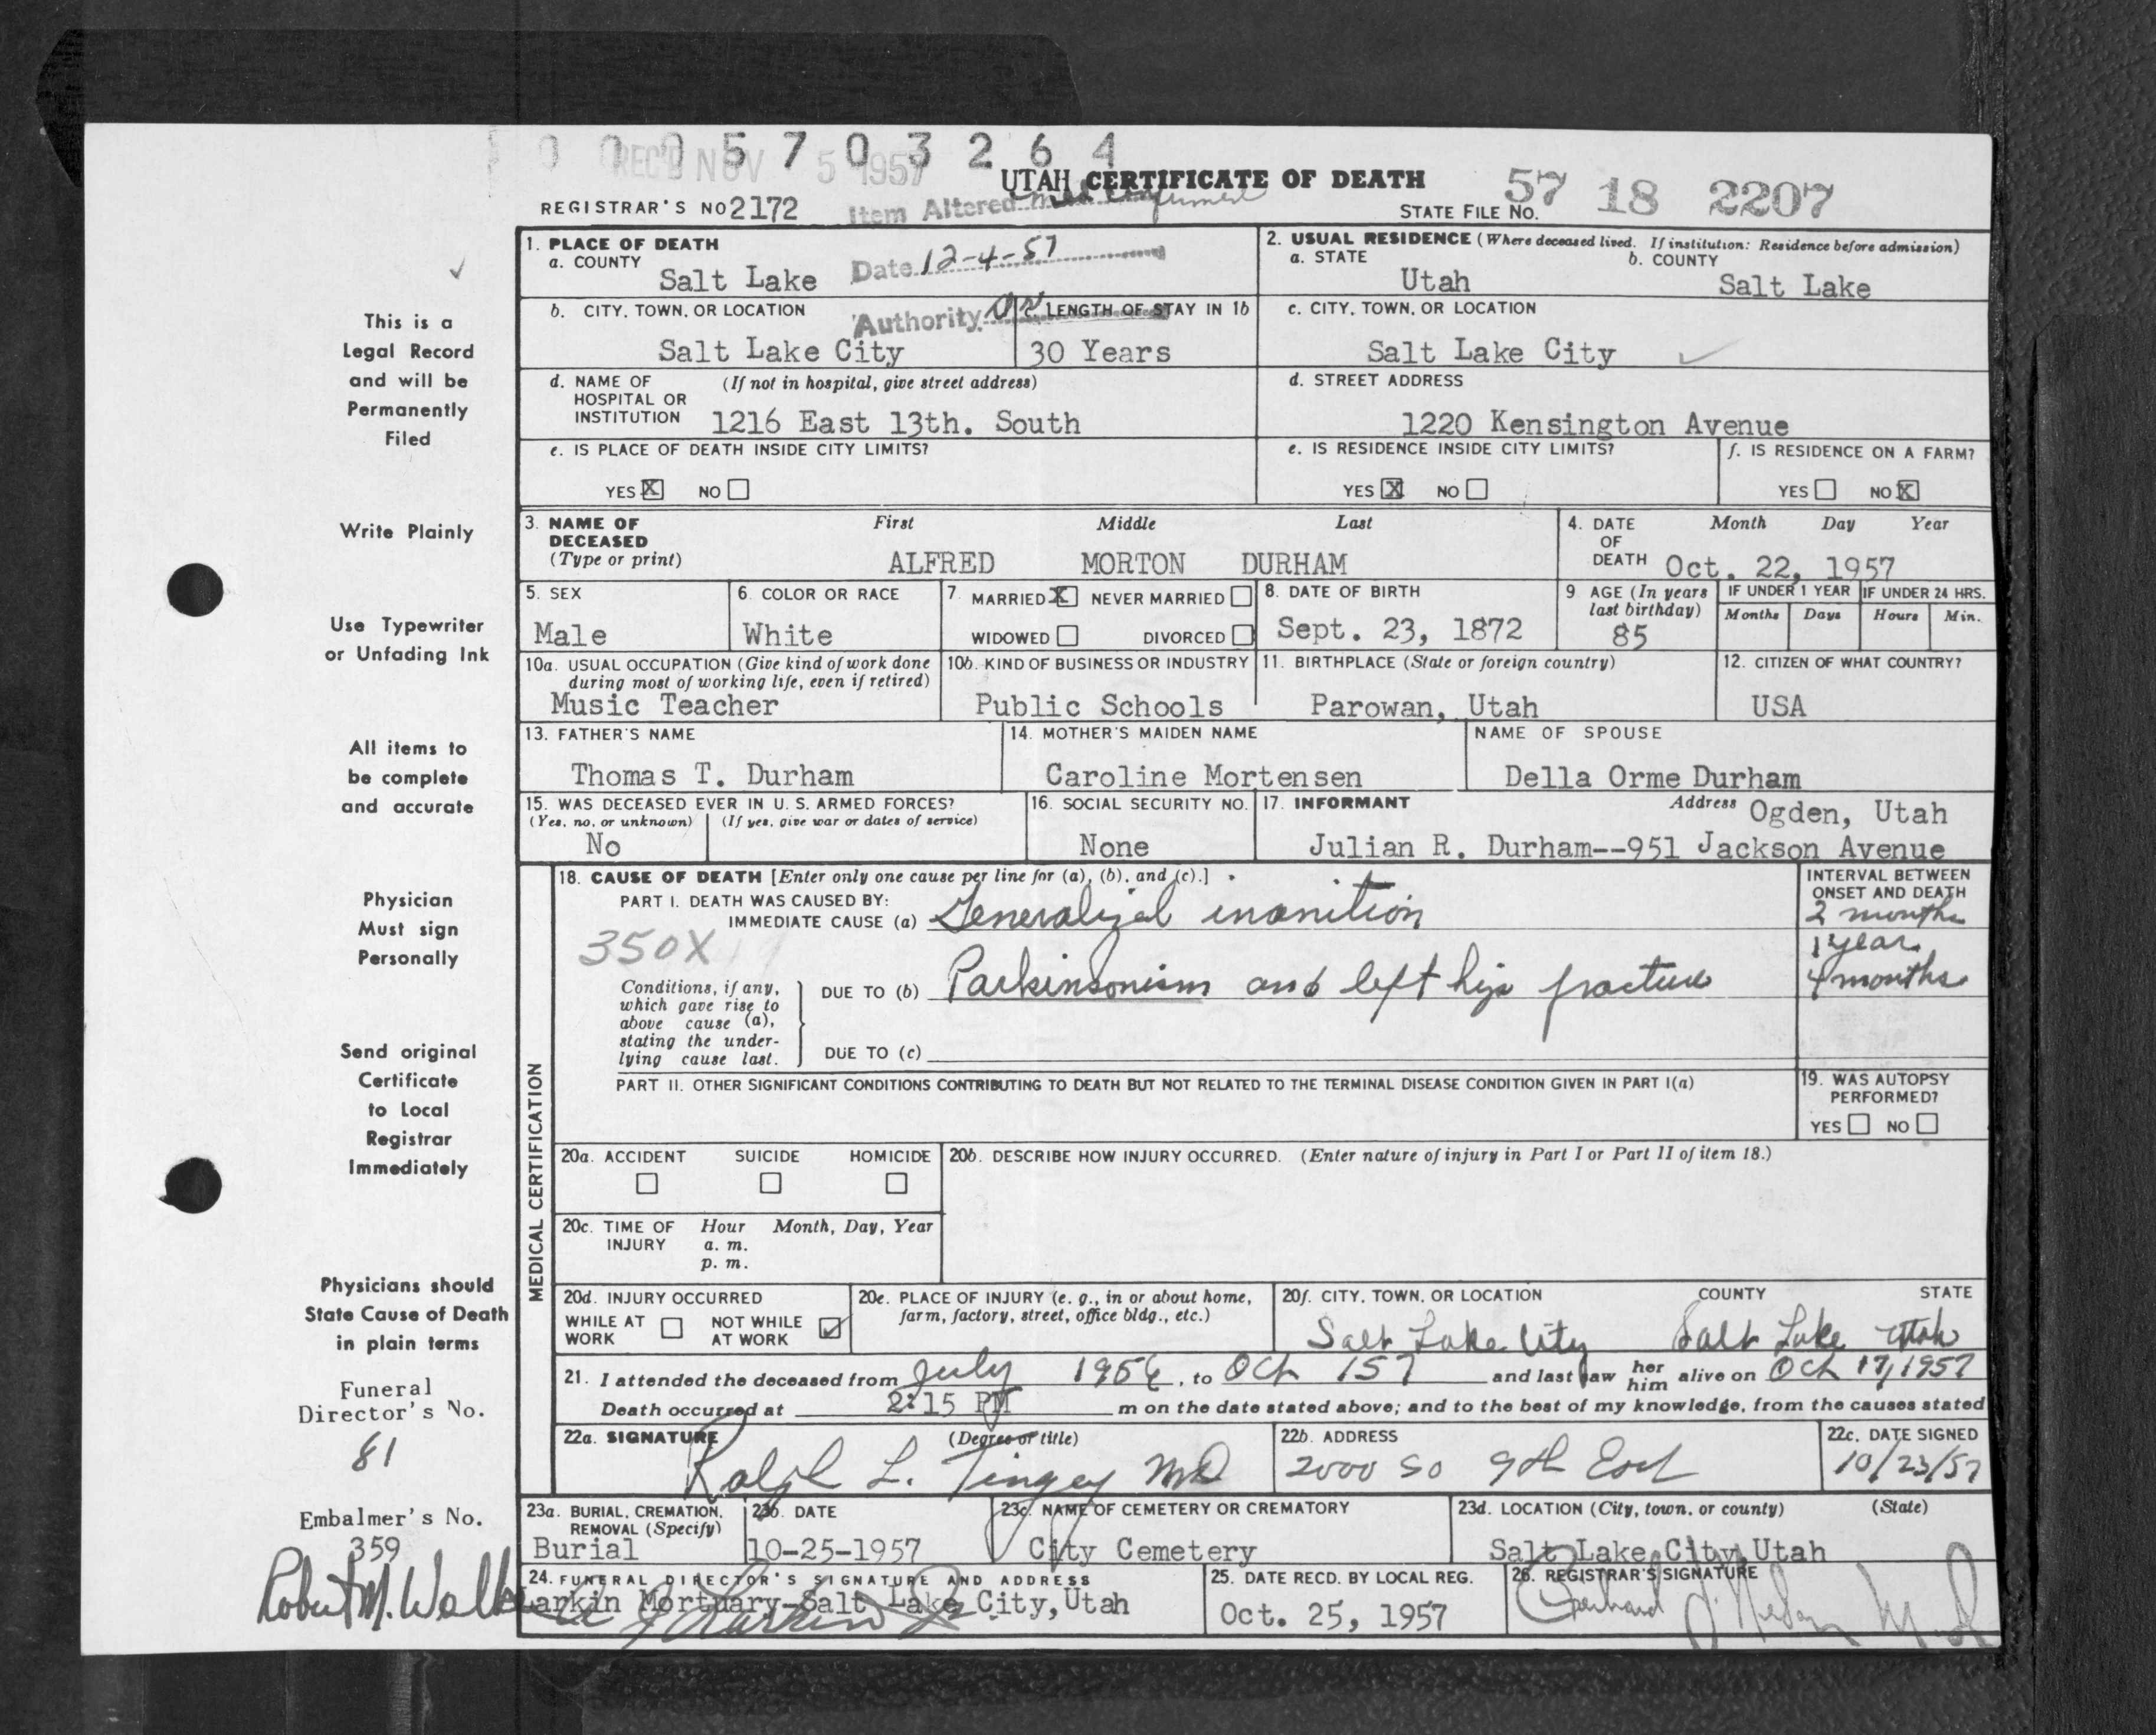 0005703264
REC'D NOV 5 1957
UTAH CERTIFICATE OF DEATH
57 18 2207
REGISTRAR'S NO 2172
Item Altered
STATE FILE NO.
1. PLACE OF DEATH
a. COUNTY
Salt Lake
Date 12-4-57
2. USUAL RESIDENCE (Where deceased lived. If institution: Residence before admission)
a. STATE
Utah
b. COUNTY
Salt Lake
b. CITY, TOWN, OR LOCATION
Salt Lake City
Authority
c. LENGTH OF STAY IN 1b
30 Years
c. CITY, TOWN, OR LOCATION
Salt Lake City
d. NAME OF HOSPITAL OR INSTITUTION
(If not in hospital, give street address)
1216 East 13th. South
d. STREET ADDRESS
1220 Kensington Avenue
e. IS PLACE OF DEATH INSIDE CITY LIMITS?
YES X NO
e. IS RESIDENCE INSIDE CITY LIMITS?
YES X NO
f. IS RESIDENCE ON A FARM?
YES NO X
3. NAME OF DECEASED
(Type or print)
First Middle Last
ALFRED MORTON DURHAM
4. DATE OF DEATH
Month Day Year
Oct. 22, 1957
5. SEX
Male
6. COLOR OR RACE
White
7. MARRIED X NEVER MARRIED
WIDOWED DIVORCED
8. DATE OF BIRTH
Sept. 23, 1872
9 AGE (In years last birthday)
85
IF UNDER 1 YEAR
Months Days
IF UNDER 24 HRS.
Hours Min.
10a. USUAL OCCUPATION (Give kind of work done during most of working life, even if retired)
Music Teacher
10b. KIND OF BUSINESS OR INDUSTRY
Public Schools
11. BIRTHPLACE (State or foreign country)
Parowan, Utah
12. CITIZEN OF WHAT COUNTRY?
USA
13. FATHER'S NAME
Thomas T. Durham
14. MOTHER'S MAIDEN NAME
Caroline Mortensen
NAME OF SPOUSE
Della Orme Durham
15. WAS DECEASED EVER IN U. S. ARMED FORCES?
(Yes, no, or unknown) (If yes, give war or dates of service)
No
16. SOCIAL SECURITY NO.
None
17. INFORMANT
Address Ogden, Utah
Julian R. Durham--951 Jackson Avenue
MEDICAL CERTIFICATION
18. CAUSE OF DEATH [Enter only one cause per line for (a), (b), and (c).]
INTERVAL BETWEEN ONSET AND DEATH
PART I. DEATH WAS CAUSED BY:
IMMEDIATE CAUSE (a) Generalized inanition
2 months
350X
1 year
Conditions, if any, which gave rise to above cause (a), stating the underlying cause last.
DUE TO (b) Parkinsonism and left hip fracture
4 months
DUE TO (c)
PART II. OTHER SIGNIFICANT CONDITIONS CONTRIBUTING TO DEATH BUT NOT RELATED TO THE TERMINAL DISEASE CONDITION GIVEN IN PART I(a)
19. WAS AUTOPSY PERFORMED?
YES NO
20a. ACCIDENT SUICIDE HOMICIDE
20b. DESCRIBE HOW INJURY OCCURRED. (Enter nature of injury in Part I or Part II of item 18.)
20c. TIME OF INJURY
Hour Month, Day, Year
a. m.
p. m.
20d. INJURY OCCURRED
WHILE AT WORK NOT WHILE AT WORK
20e. PLACE OF INJURY (e. g., in or about home, farm, factory, street, office bldg., etc.)
20f. CITY, TOWN, OR LOCATION COUNTY STATE
Salt Lake City Salt Lake Utah
21. I attended the deceased from July 1956, to Oct 157 and last saw her him alive on Oct 17, 1957
Death occurred at 2:15 PM m on the date stated above; and to the best of my knowledge, from the causes stated
22a. SIGNATURE (Degree or title)
Ralph L. Tingey MD
22b. ADDRESS
2000 So 9th East
22c. DATE SIGNED
10/23/57
23a. BURIAL, CREMATION, REMOVAL (Specify)
Burial
23b. DATE
10-25-1957
23c. NAME OF CEMETERY OR CREMATORY
City Cemetery
23d. LOCATION (City, town, or county) (State)
Salt Lake City, Utah
24. FUNERAL DIRECTOR'S SIGNATURE AND ADDRESS
Larkin Mortuary-Salt Lake City, Utah
25. DATE RECD. BY LOCAL REG.
Oct. 25, 1957
26. REGISTRAR'S SIGNATURE
This is a
Legal Record
and will be
Permanently
Filed
Write Plainly
Use Typewriter
or Unfading Ink
All items to
be complete
and accurate
Physician
Must sign
Personally
Send original
Certificate
to Local
Registrar
Immediately
Physicians should
State Cause of Death
in plain terms
Funeral
Director's No.
81
Embalmer's No.
359
Robert M.